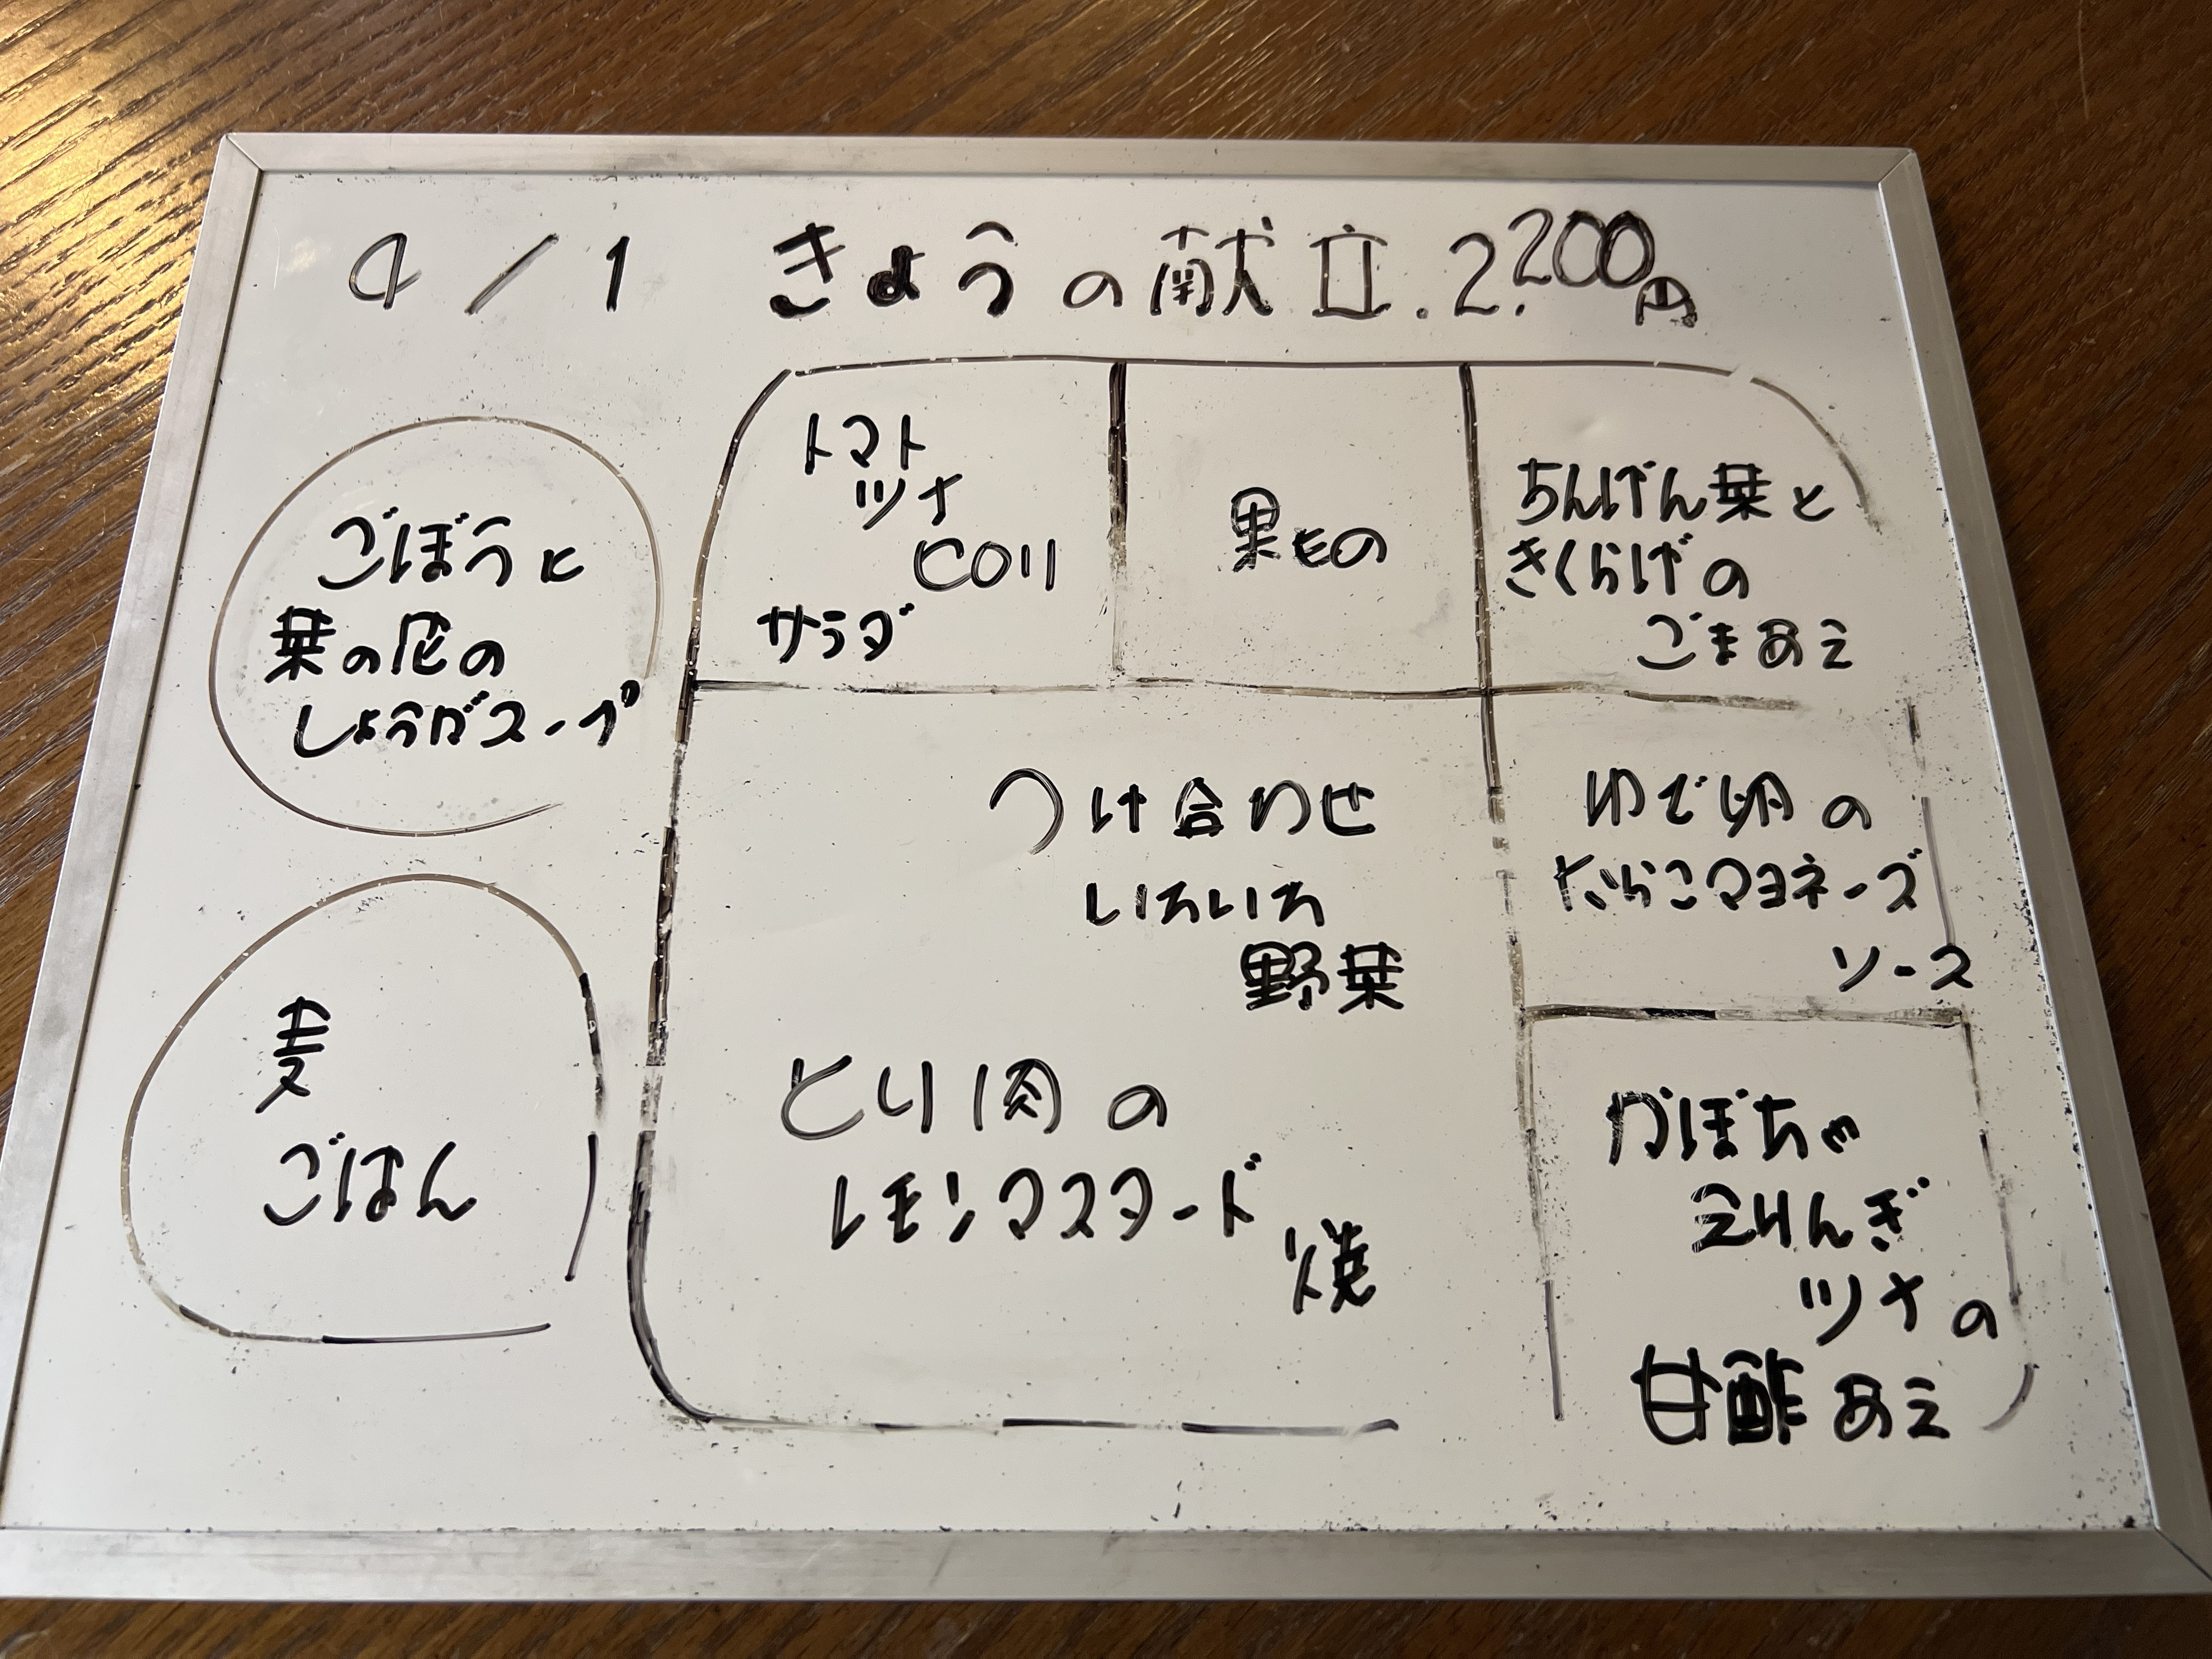 4/1 きょうの献立.2.200円
ごぼうと
菜の花の
しょうがスープ
麦
ごはん
トマト
ツナ
サラダ
果もの
ちんげん菜と
きくらげの
ごまあえ
つけ合わせ
いろいろ
野菜
とり肉の
レモンマスタード
焼
ゆで卵の
たらこマヨネーズ
ソース
かぼちゃ
えりんぎ
ツナの
甘酢あえ